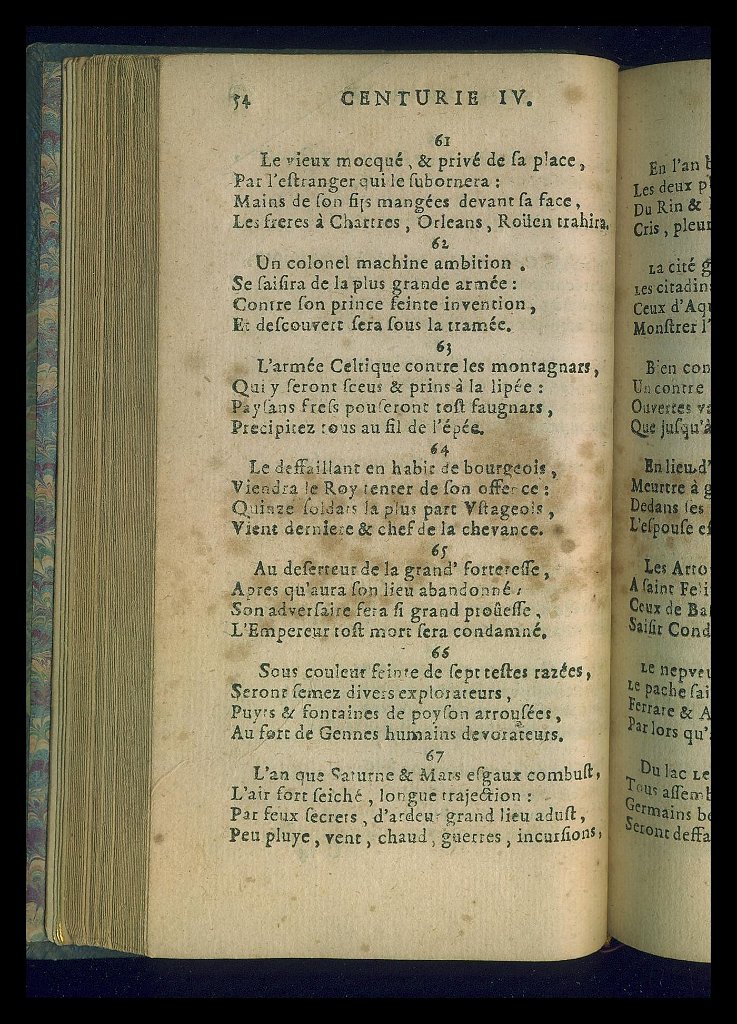 54 CENTURIE IV.
61
Le vieux mocqué, & privé de ſa place,
Par l'eſtranger qui le ſubornera :
Mains de ſon fils mangées devant ſa face,
Les freres à Chartres, Orleans, Roüen trahira.
62
Un colonel machine ambition .
Se ſaiſira de la plus grande armée :
Contre ſon prince feinte invention,
Et deſcouvert ſera ſous la ramée.
63
L'armée Celtique contre les montagnars,
Qui y ſeront ſceus & prins à la lipée :
Payſans freſs pouſeront toſt faugnars,
Precipitez tous au fil de l'épée.
64
Le deffaillant en habit de bourgeois,
Viendra le Roy tenter de ſon offence :
Quinze ſoldats la plus part Vſtageois,
Vient derniere & chef de la chevance.
65
Au deſerteur de la grand' fortereſſe,
Apres qu'aura ſon lieu abandonné,
Son adverſaire fera ſi grand proüeſſe,
L'Empereur toſt mort ſera condamné.
66
Sous couleur feinte de ſept teſtes razées,
Seront ſemez divers explorateurs,
Puyts & fontaines de poyſon arrouſées,
Au fort de Gennes humains devorateurs.
67
L'an que Saturne & Mars eſgaux combuſt,
L'air fort ſeiché, longue trajection :
Par feux ſecrets, d'ardeur grand lieu aduſt,
Peu pluye, vent, chaud, guerres, incurſions,
En l'an
Les deux
Du Rin &
Cris, pleur
La cité
Les citadin
Ceux d'Aq
Monſtrer l'
Bien con
Un contre
Ouvertes va
Que juſqu'à
En lieu d'
Meurtre à g
Dedans les
L'eſpouſe eſ
Les Arto
A ſaint Feli
Ceux de Ba
Saiſir Cond
Le nepveu
Le pache fai
Ferrare & A
Par lors qu'
Du lac Le
Tous aſſemb
Germains be
Seront deffa